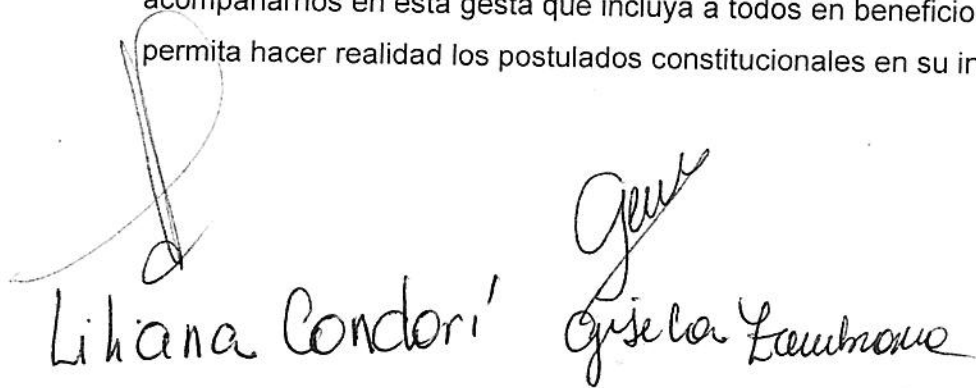 acompañarnos en esta gesta que incluya a todos en beneficio
permita hacer realidad los postulados constitucionales en su in
Liliana Condorí Gisela Zambrana